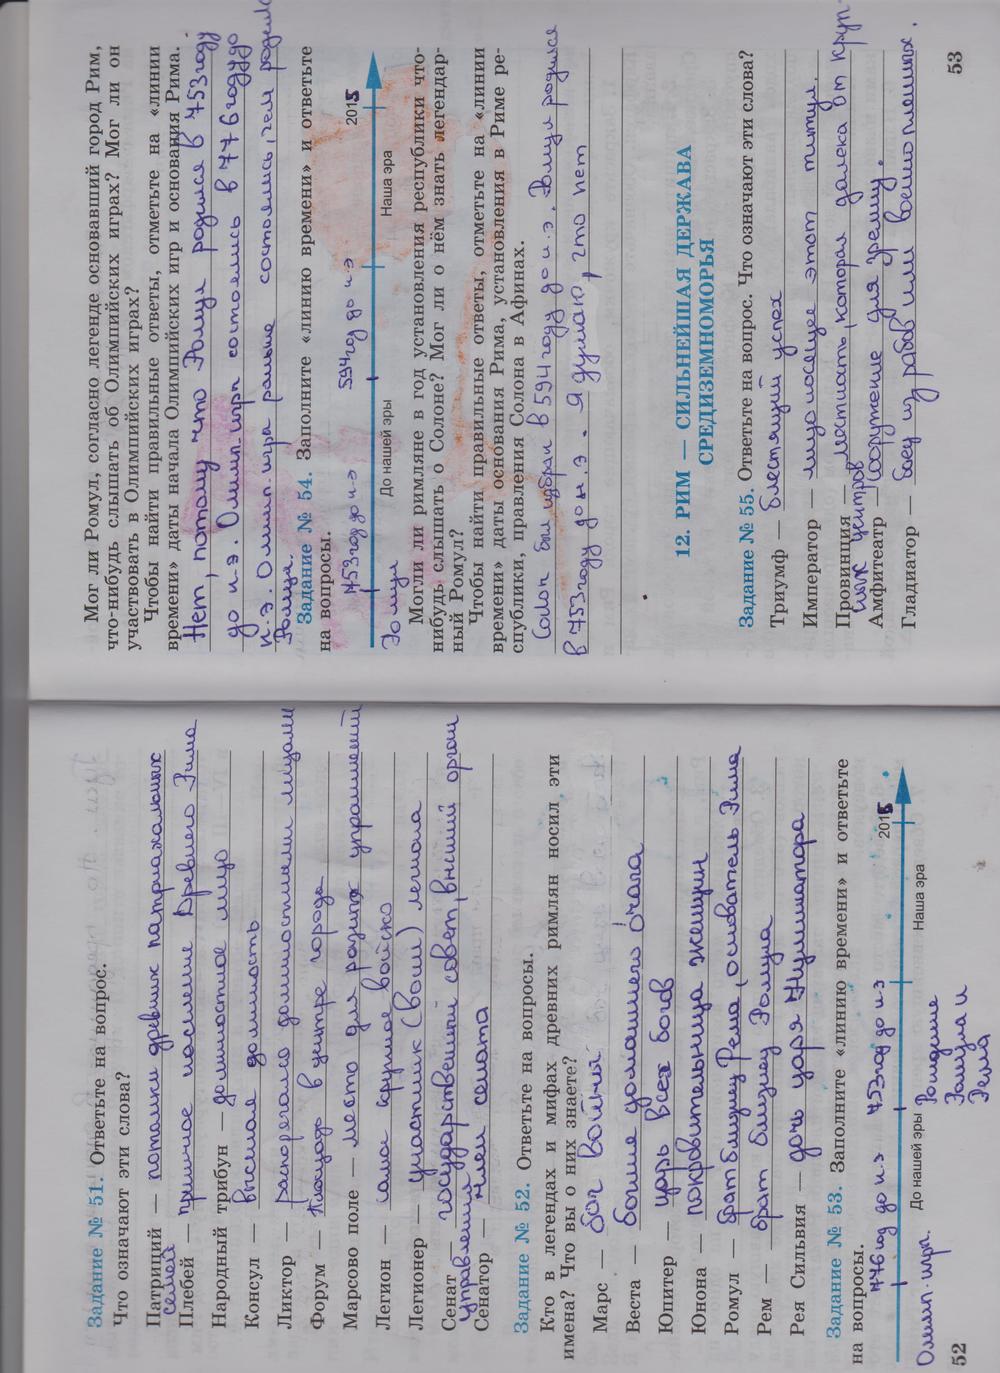 Задание № 51. Ответьте на вопрос.
Что означают эти слова?
Патриций — потомки древних патриахальных
семей
Плебей — пришлое население Древнего Рима
Народный трибун — должностное лицо
Консул — высшая должность
Ликтор — распорегала должностными лицами
Форум — площадь в центре города
Марсово поле — место для родину упрашнений
Легион — само крупное войско
Легионер — участник (воин) легиона
Сенат — государственный совет, высший орган
управления
Сенатор — член сената
Задание № 52. Ответьте на вопросы.
Кто в легендах и мифах древних римлян носил эти
имена? Что вы о них знаете?
Марс — бог войны
Веста — богиня домашнего очага
Юпитер — царь всех богов
Юнона — покровительница женщин
Ромул — брат близнец Рема, основатель Рима
Рем — брат близнец Ромула
Рея Сильвия — дочь царя Нумитора
Задание № 53. Заполните «линию времени» и ответьте
на вопросы.
776 год до н.э 753 год до н.э 2015
До нашей эры Наша эра
Олимп. игры. Рождение
Ромула и
Рема
52
Мог ли Ромул, согласно легенде основавший город Рим,
что-нибудь слышать об Олимпийских играх? Мог ли он
участвовать в Олимпийских играх?
Чтобы найти правильные ответы, отметьте на «линии
времени» даты начала Олимпийских игр и основания Рима.
Нет, потому что Ромул родился в 753 году
до н.э. Олимп. игр состоялись в 776 году до
н.э. Олимп. игра раньше состоялись, чем родился
Ромул.
Задание № 54. Заполните «линию времени» и ответьте
на вопросы.
753 год до н.э 594 год до н.э 2015
До нашей эры Наша эра
Ромул
Могли ли римляне в год установления республики что-
нибудь слышать о Солоне? Мог ли о нём знать легендар-
ный Ромул?
Чтобы найти правильные ответы, отметьте на «линии
времени» даты основания Рима, установления в Риме ре-
спублики, правления Солона в Афинах.
Салон был избран в 594 году до н.э. Ромул родился
в 753 году до н.э. Я думаю, что нет
12. РИМ — СИЛЬНЕЙШАЯ ДЕРЖАВА
СРЕДИЗЕМНОМОРЬЯ
Задание № 55. Ответьте на вопрос. Что означают эти слова?
Триумф — блестящий успех
Император — лицо носящее этот титул.
Провинция — местность, которая далека от круп-
ных центров
Амфитеатр — сооружение для зрелищ.
Гладиатор — боец из рабов или военнопленных.
53